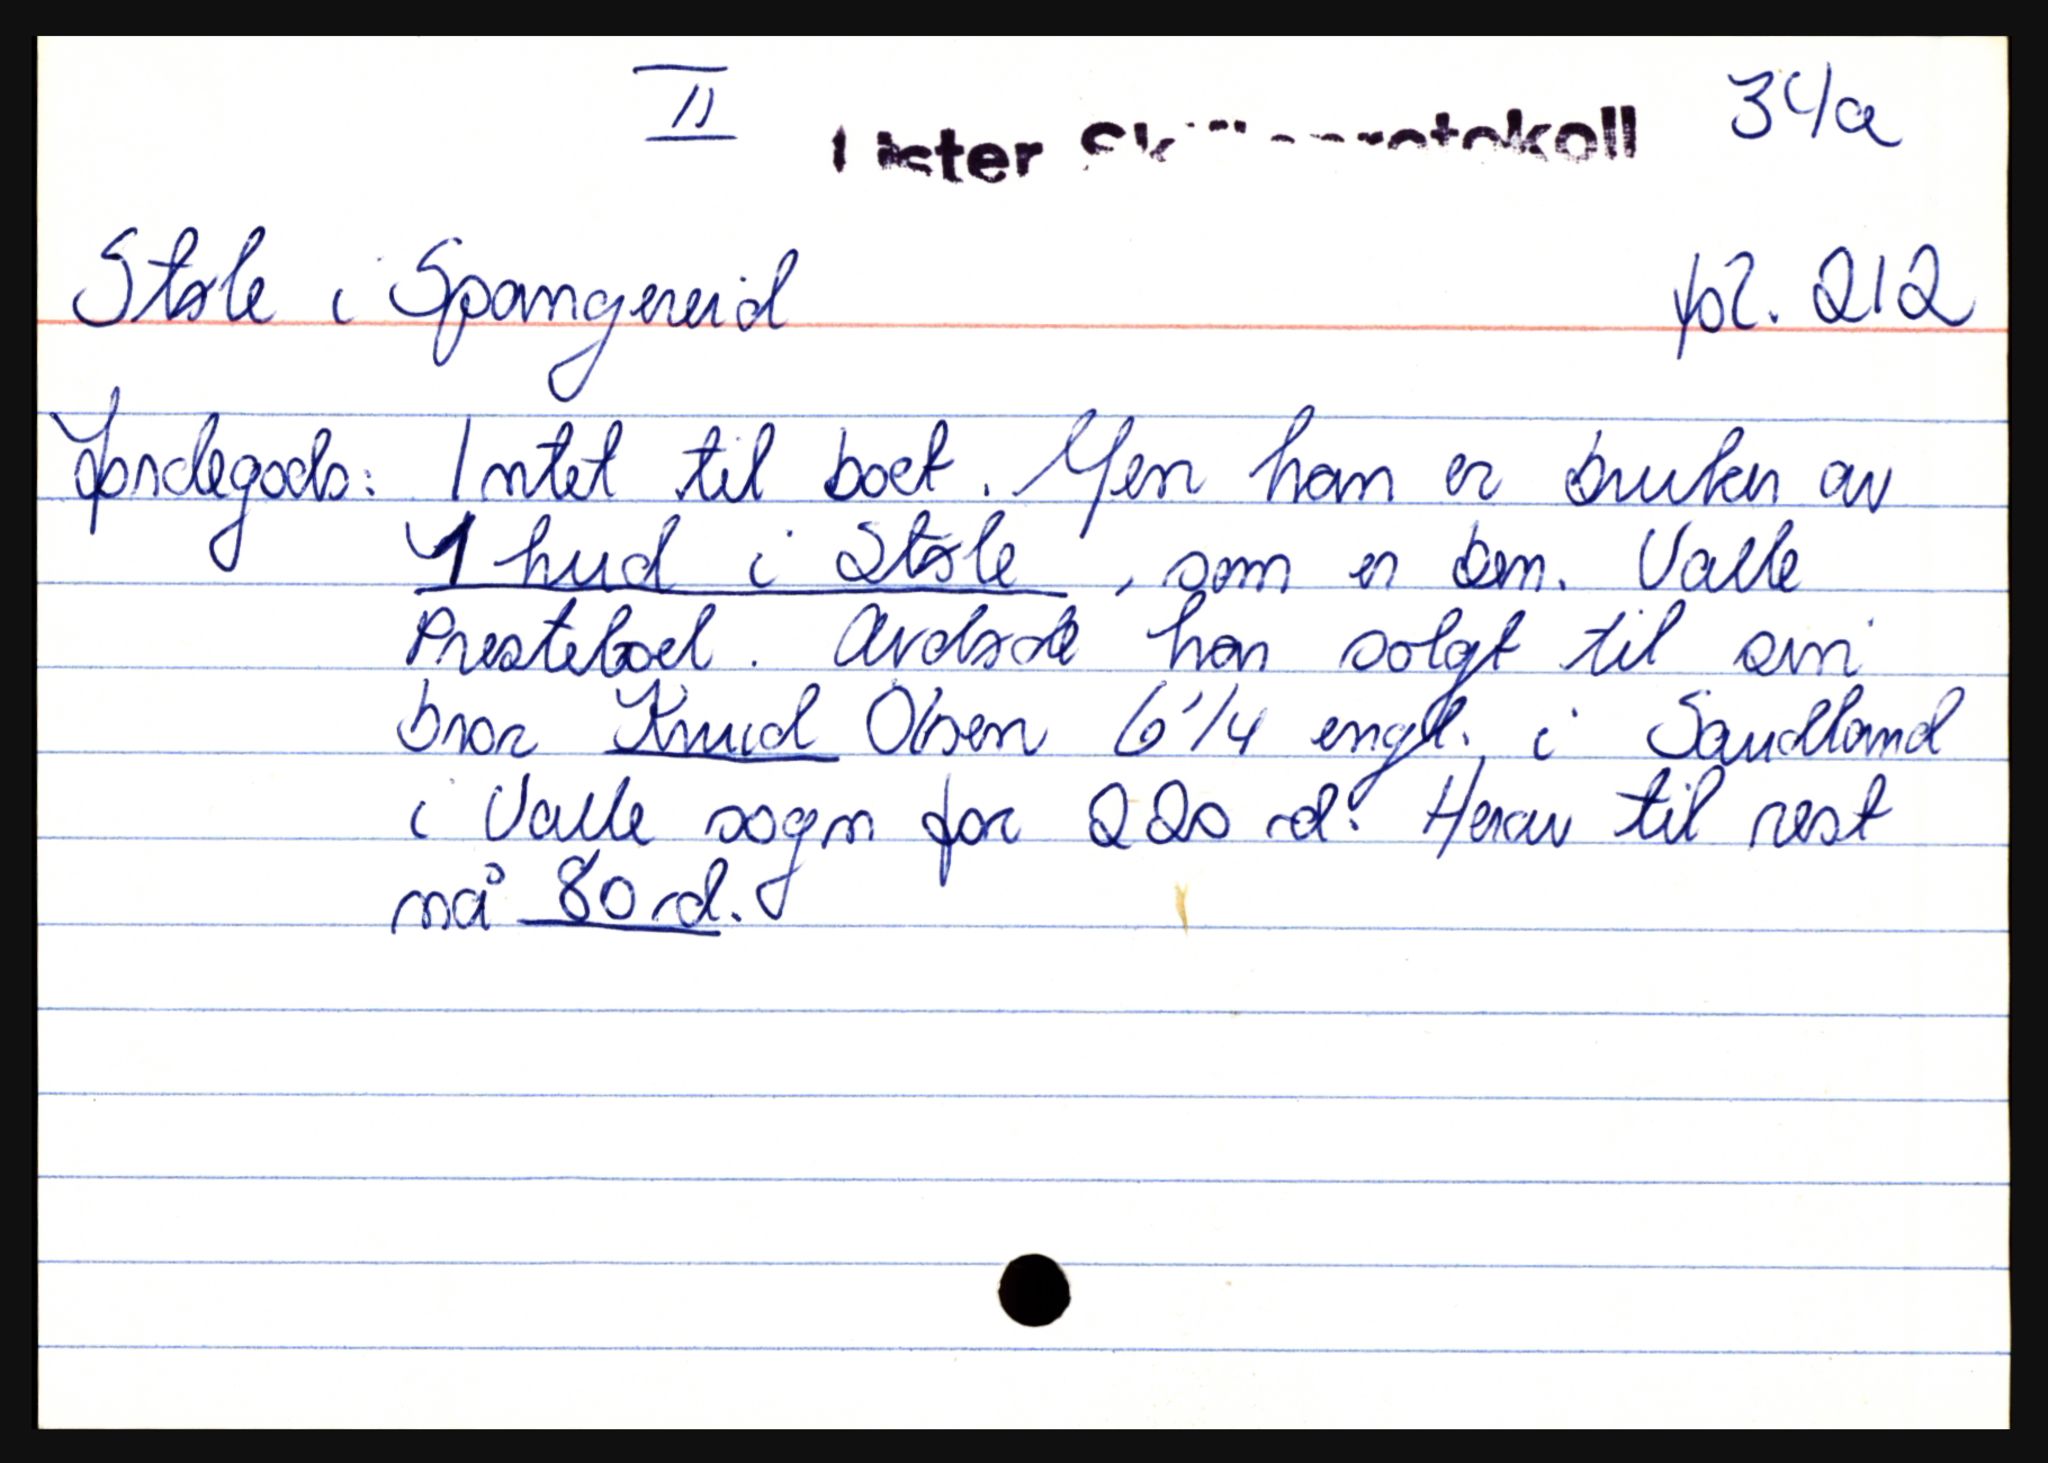 II
Lister Skifteprotokoll 34a
Støle i Spangereid fol. 212
Jordegods: Intet til boet. Men han er bruker av
1 hud i Støle, som er ben. Valle
Presteboel. Avdøde har solgt til sin
bror Knud Olsen 6 1/4 engl. i Saudland
i Valle sogn for 220 rd. Herav til rest
nå 80 rd.